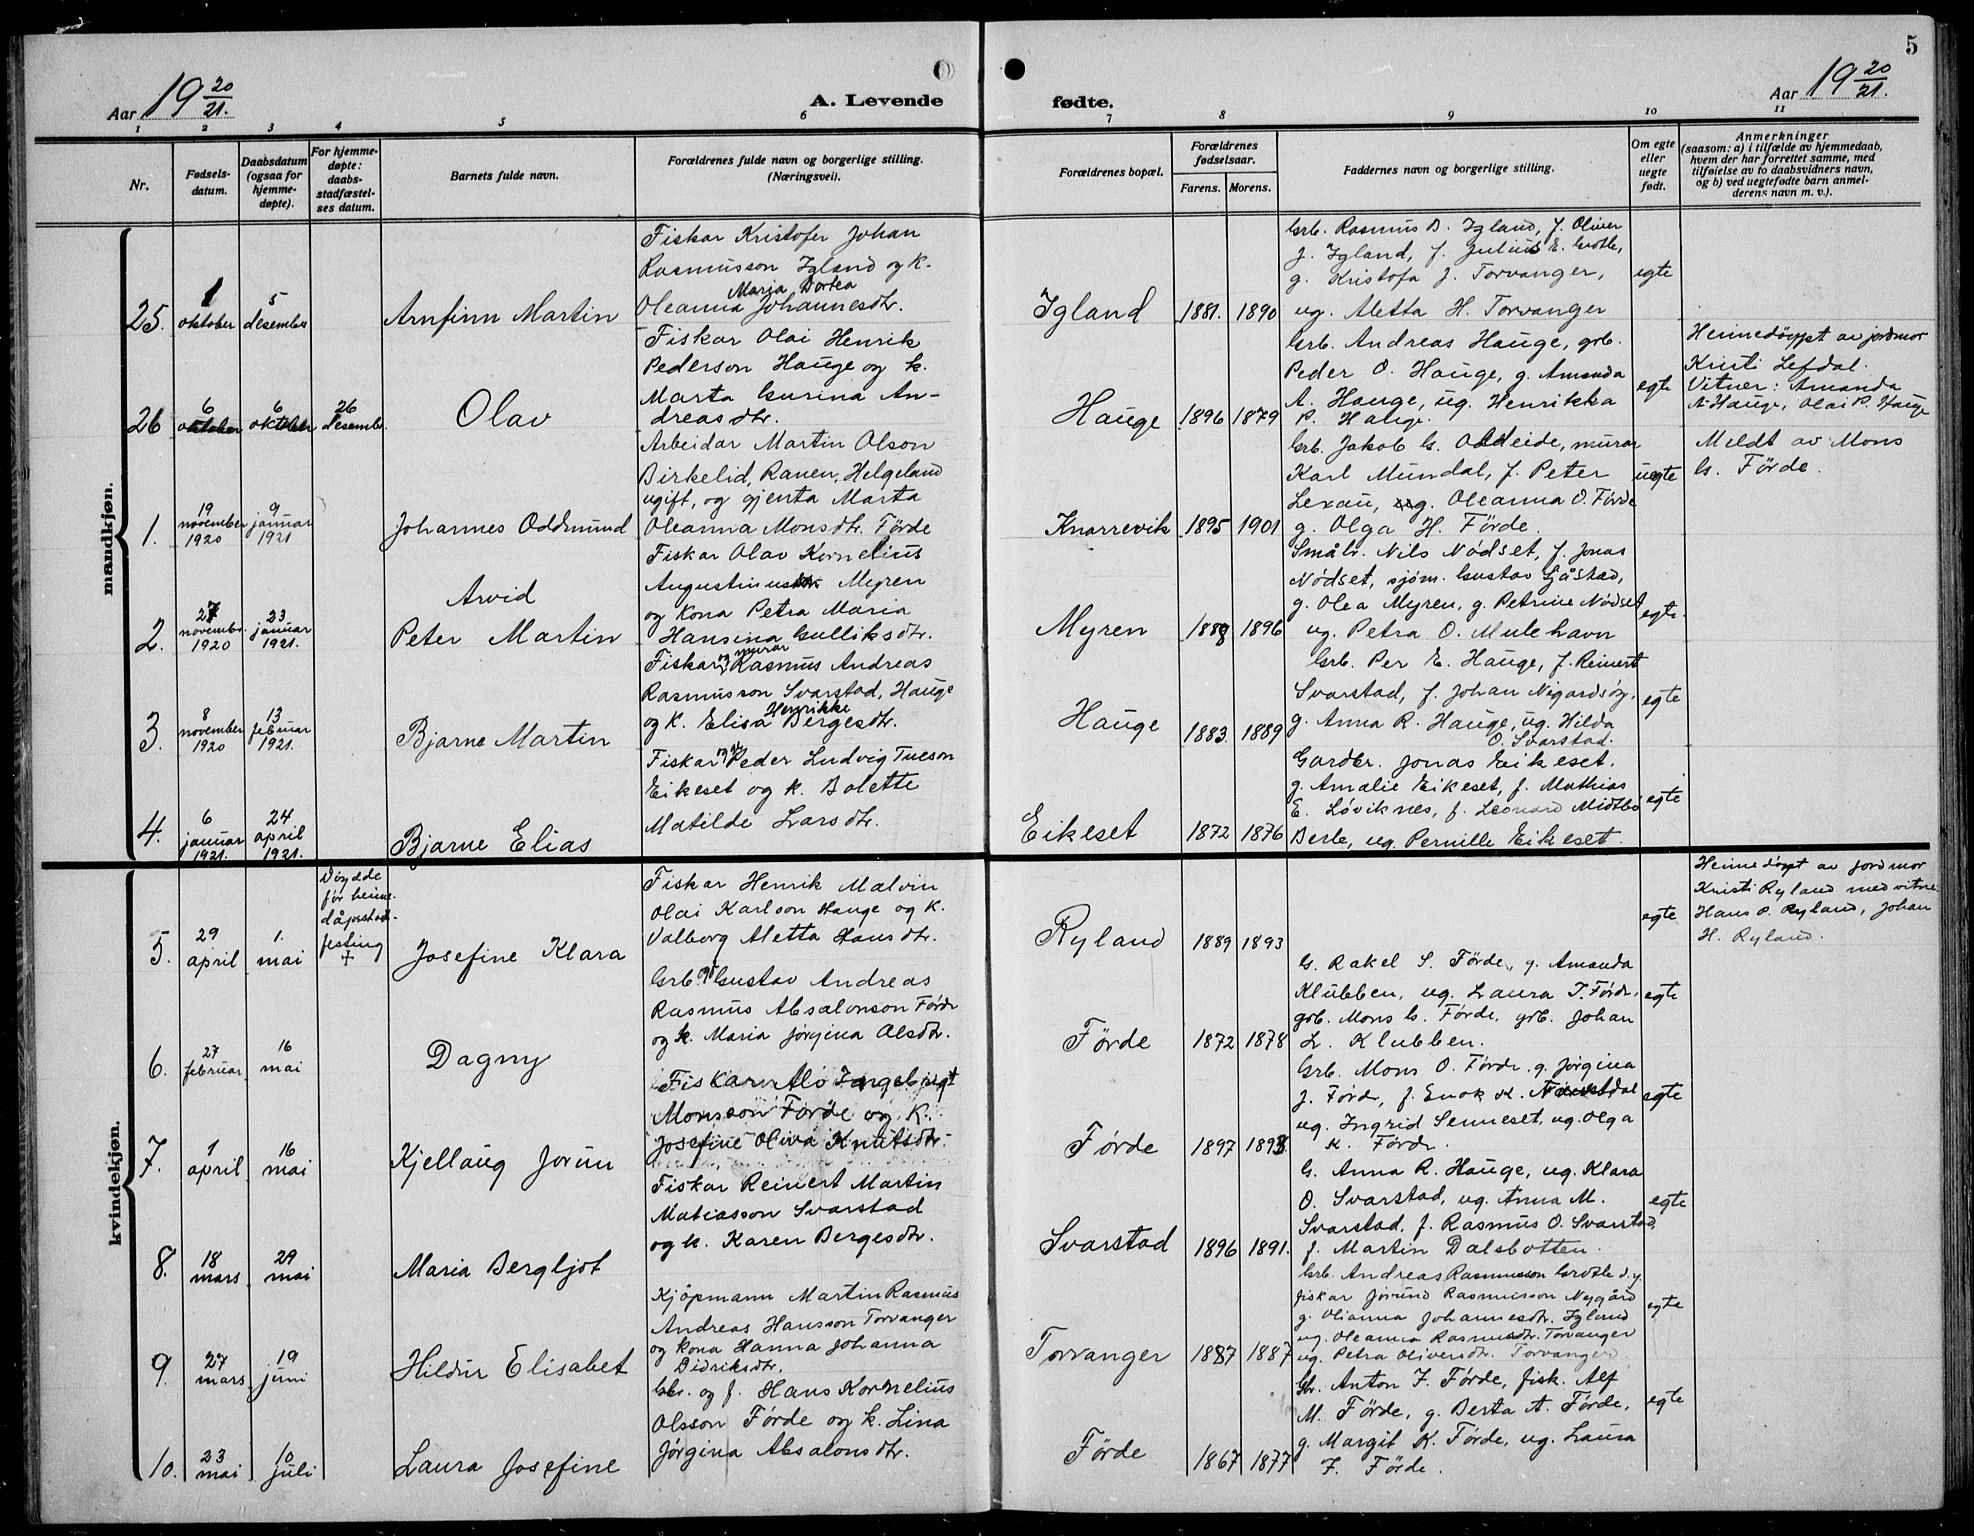 5
Aar 19 20/21.
A. Levende
fødte.
Aar 19 20/21.
1 2 3 4 5 6 7 8 9 10 11
Nr.
Fødsels-
datum.
Daabsdatum
(ogsaa for
hjemme-
døpte).
For hjemme-
døpte:
daabs-
stadfæstel-
ses datum.
Barnets fulde navn.
Forældrenes fulde navn og borgerlige stilling.
(Næringsvei).
Forældrenes bopæl.
Forældrenes
fødselsaar.
Farens. Morens.
Faddernes navn og borgerlige stilling.
Om egte
eller
uegte
født.
Anmerkninger
(saasom: a) i tilfælde av hjemmedaab,
hvem der har forrettet samme, med
tilføielse av to daabsvidners navn,
og b) ved uegtefødte barn anmel-
derens navn m. v.).
mandkjøn.
25. 1 oktober 5 desember
Arnfinn Martin
Fiskar Kristofer Johan
Rasmusson Igland og k.
Maria Dortea
Oleanna Johannesdtr.
Igland 1881. 1890
Grb. Rasmus B. Igland, f. Oliver
J. Igland, f. Julius E. Grotle,
g. Kristofa J. Torvanger,
ug. Aletta H. Torvanger
egte
26 6 oktober 6 oktober 26 desembr.
Olav
Fiskar Olai Henrik
Pederson Hauge og k.
Marta Gurina An-
dreasdtr.
Hauge 1896 1879
Grb. Andreas Hauge, grb.
Peder O. Hauge, g. Amanda
A. Hauge, ug. Henrikka
P. Hauge
egte
Heimedöypt av jordmor
Kristi Lefdal.
Vitner: Amanda
A. Hauge, Olai P. Hauge
1. 19 november 1920 9 januar 1921
Johannes Oddmund
Arbeidar Martin Olson
Birkelid, Ranen, Helgeland
ugift, og gjenta Marta
Oleanna Monsdtr. Förde
Knarrevik 1895 1901
Grb. Jakob G. Aldeide, murar
Karl Mundal, f. Peter
Lexau, ug. Oleanna O. Förde
g. Olga H. Förde.
uegte
Meldt av Mons
G. Förde.
2. 27 novembr. 1920 23 januar 1921.
Arvid
Peter Martin
Fiskar Olav Kornelius
Augustinus Myren
og kona Petra Maria
Hansina Gulliksdtr.
Myren 1888 1896
Småbr. Nils Nödset, f. Jonas
Nödset, sjøm. Gustav Sjåstad,
g. Olea Myren, g. Petrine Nödset
ug. Petra O. Mulehavn
egte.
3. 8 november 1920 13 februar 1921.
Bjarne Martin
og murar
Fiskar, Rasmus Andreas
Rasmusson Svarstad, Hauge
Henrikke
og k. Elisa Bergesdtr.
Hauge 1883. 1889
Grb. Per E. Hauge, f. Reinert
Svarstad, f. Johan Nigardsöy,
g. Anna R. Hauge, ug. Hilda
O. Svarstad.
egte
4. 6 januar 1921. 24 april 1921.
Bjarne Elias
Fiskar Peder Ludvig Tueson
Eikeset og k. Bolette
Matilde Larsdtr.
Eikeset 1872 1876
Gardbr. Jonas Eikeset.
g. Amalie Eikeset, f. Mathias
E. Løviknes, f. Leonard Midtbö
Berle, ug. Pernille Eikeset.
egte
kvindekjøn.
5. 29 april 1. mai
Döydde
før heime-
dåpsstad-
festing
+
Josefine Klara
Fiskar Henrik Malvin
Olai Karlson Hauge og k.
Valborg Aletta Hansdtr.
Ryland 1889 1893
egte
Heimedöypt av jordmor
Kristi Ryland med vitne:
Hans P. Ryland, Johan
H. Ryland.
6. 27 februar 16 mai
Dagny
Grb. Gustav Andreas
Rasmus Absalonson Förde
og k. Maria Jørgina Olsdtr.
Förde 1872 1878
G. Rakel S. Förde, g. Amanda
Klubben, ug. Laura J. Förde,
grb. Mons G. Förde, grb. Johan
L. Klubben.
egte
7. 1 april 16 mai
Kjellaug Jorun
Fiskar Alv Ingebrigt
Monsson Förde og k.
Josefine Oliva Knutsdtr.
Førde 1897 1893
Grb. Mons O. Förde, g. Jørgina
J. Förde, f. Enok K.
ug. Ingrid Senneset, ug. Olga
K. Förde.
egte
8. 18 mars 29 mai
Maria Bergljot
Fiskar Reinert Martin
Matiasson Svarstad
og k. Karen Bergesdtr.
Svarstad 1896 1891.
G. Anna R. Hauge, ug. Klara
O. Svarstad, ug. Anna M.
Svarstad, f. Rasmus O. Svarstad,
f. Martin Dalsbotten.
egte
9. 27 mars 19 juni
Hildur Elisabet
Kjöpmann Martin Rasmus
Andreas Hansson Torvanger
og kona Hanna Johanna
Didriksdtr.
Torvanger 1887 1887
Grb. Andreas Rasmusson Grotle d.y.
fiskar Jørund Rasmusson Nygård
g. Olianna Johannesdtr. Igland
ug. Oleanna Rasmusdtr. Torvanger
ug. Petra Oliversdtr. Torvanger.
egte
10. 23 mai 10 juli
Laura Josefine
Gbr. og f. Hans Kornelius
Olsson Førde og k. Lina
Jørgina Absalonsdtr.
Førde 1867 1877
Gbr. Anton J. Førde, fisk. Alf
M. Førde, g. Berta A. Førde,
g. Margit K. Førde, ug. Laura
J. Førde.
egte